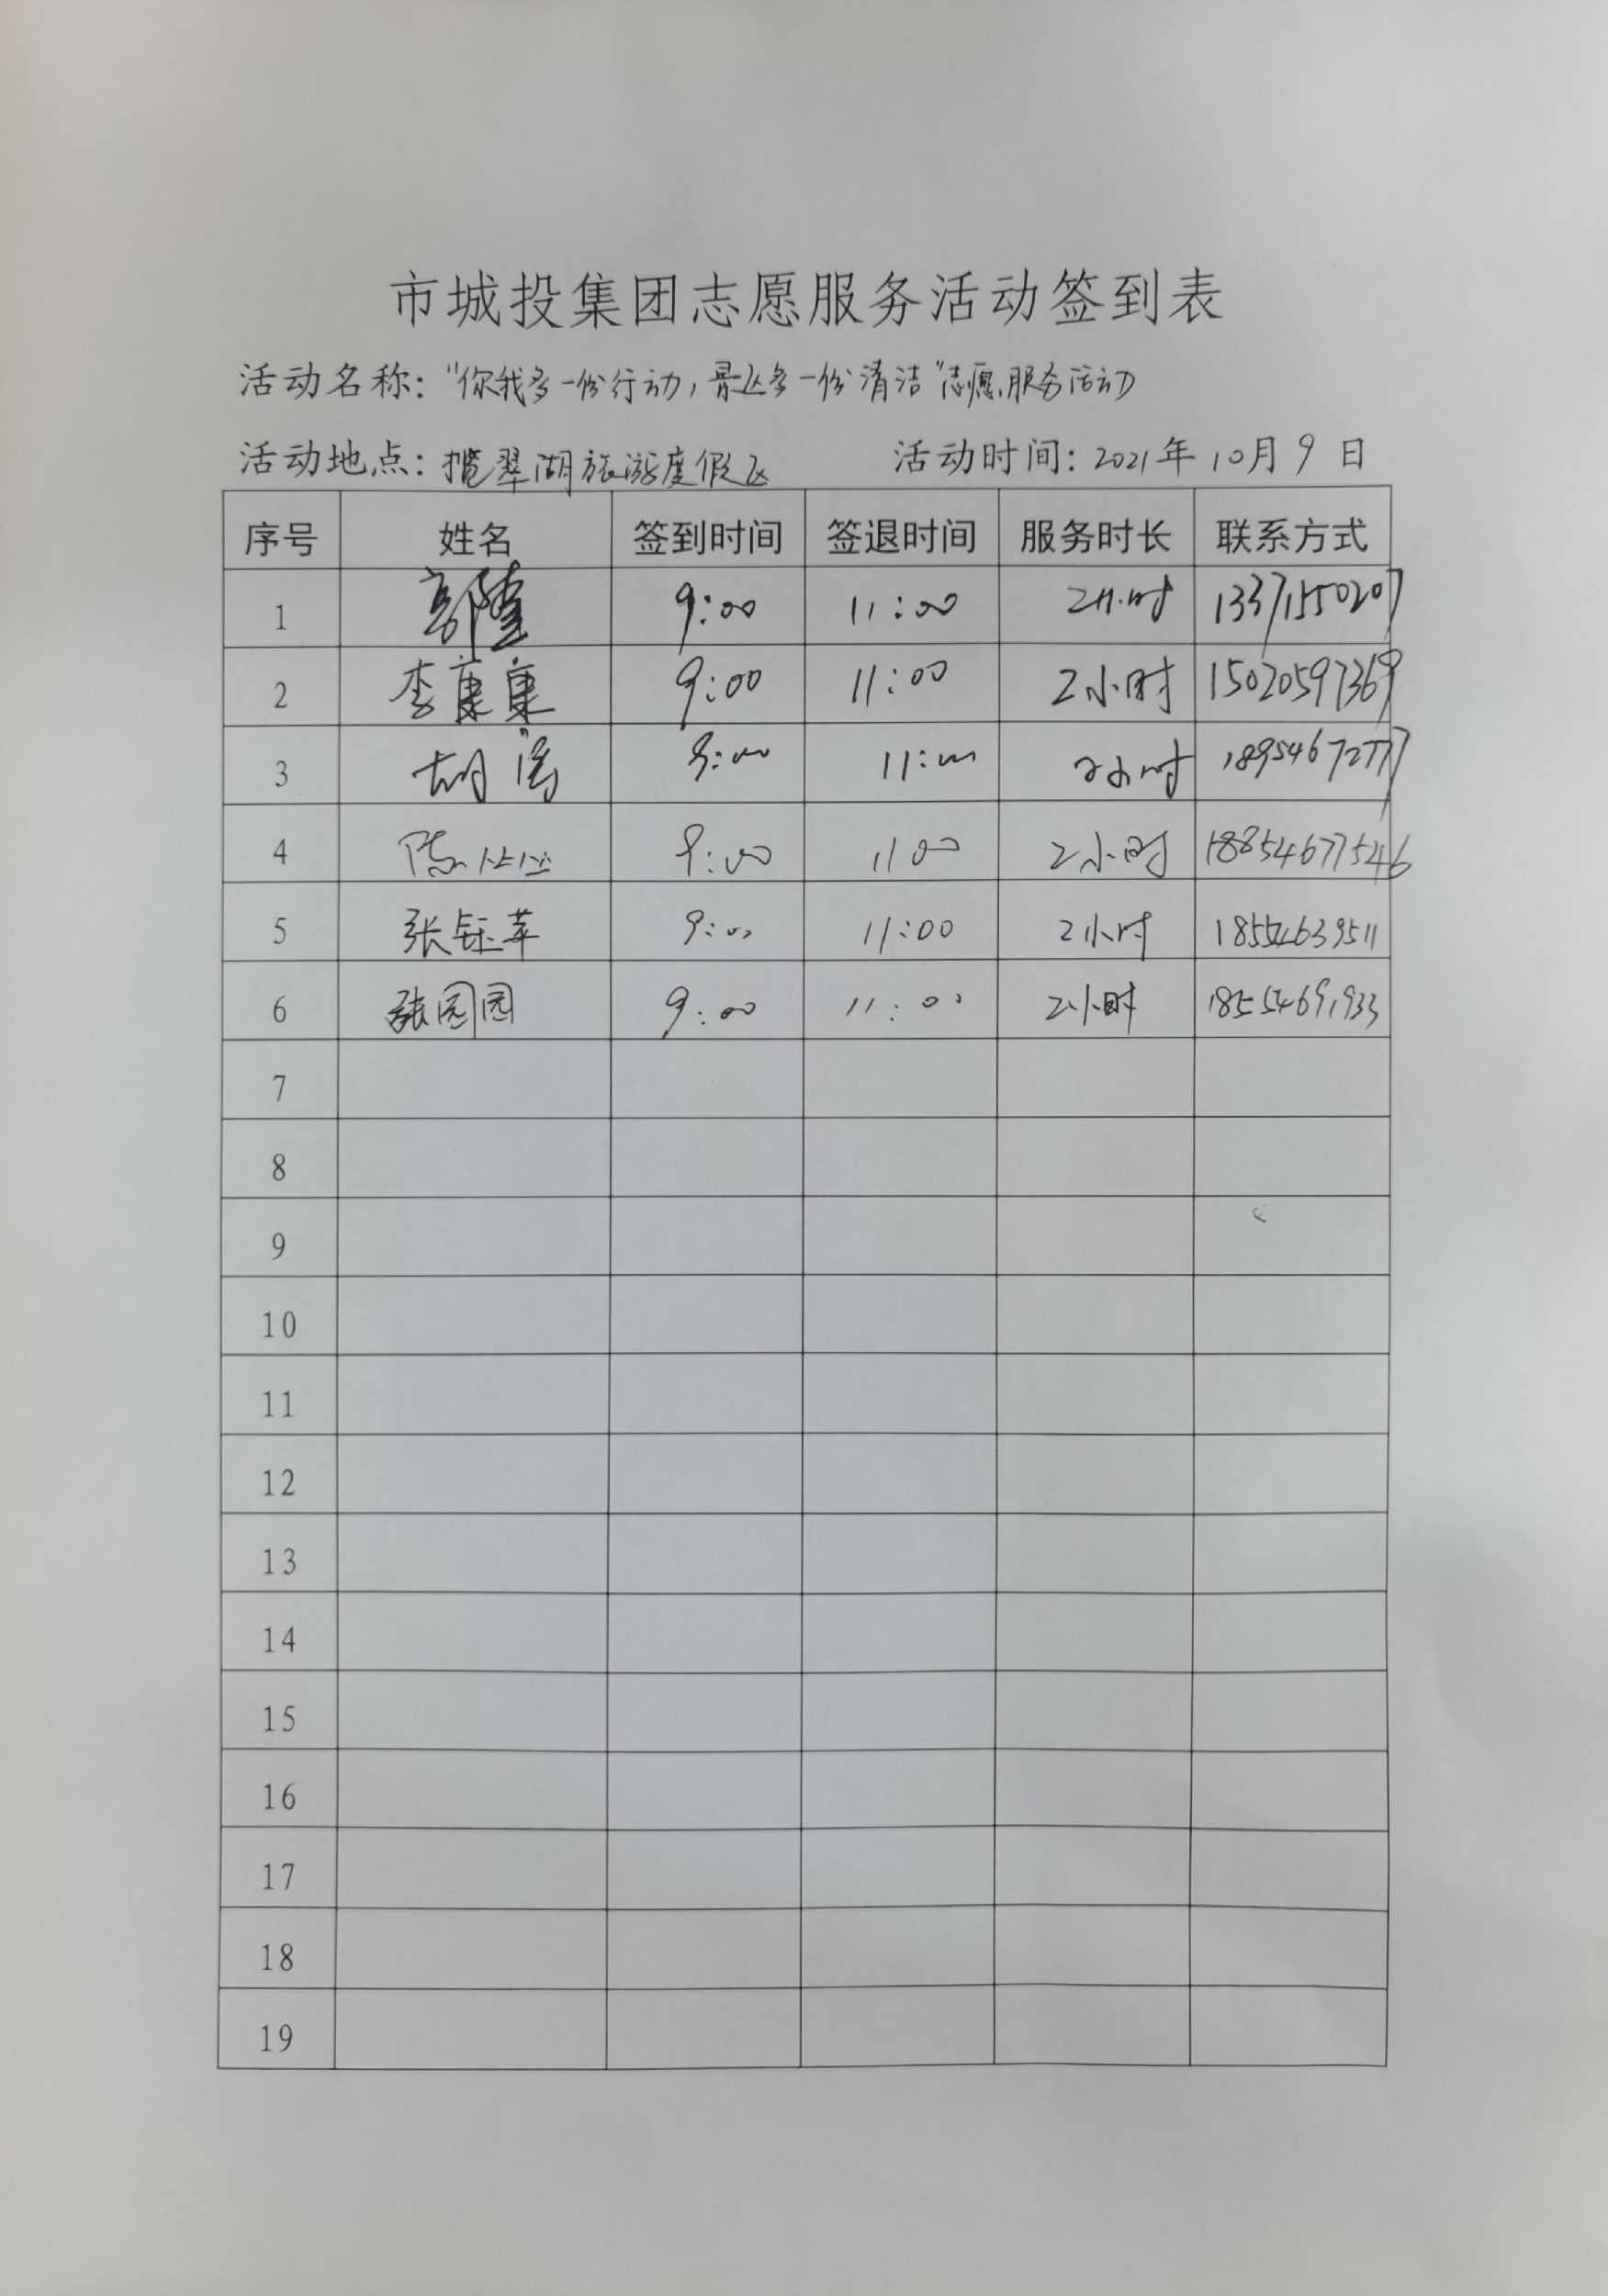 市城投集团志愿服务活动签到表
活动名称：“你我多一份行动，景区多一份清洁”志愿服务活动
活动地点：揽翠湖旅游度假区 活动时间：2021年10月9日
序号 姓名 签到时间 签退时间 服务时长 联系方式
1 9:00 11:00 2小时 13371550207
2 李康康 9:00 11:00 2小时 15020597369
3 胡 9:00 11:00 2小时 18954672777
4 陈 9:00 11 00 2小时 18854677546
5 张钰苹 9:00 11:00 2小时 18554639511
6 张园园 9:00 11:00 2小时 18554691933
7
8
9
10
11
12
13
14
15
16
17
18
19